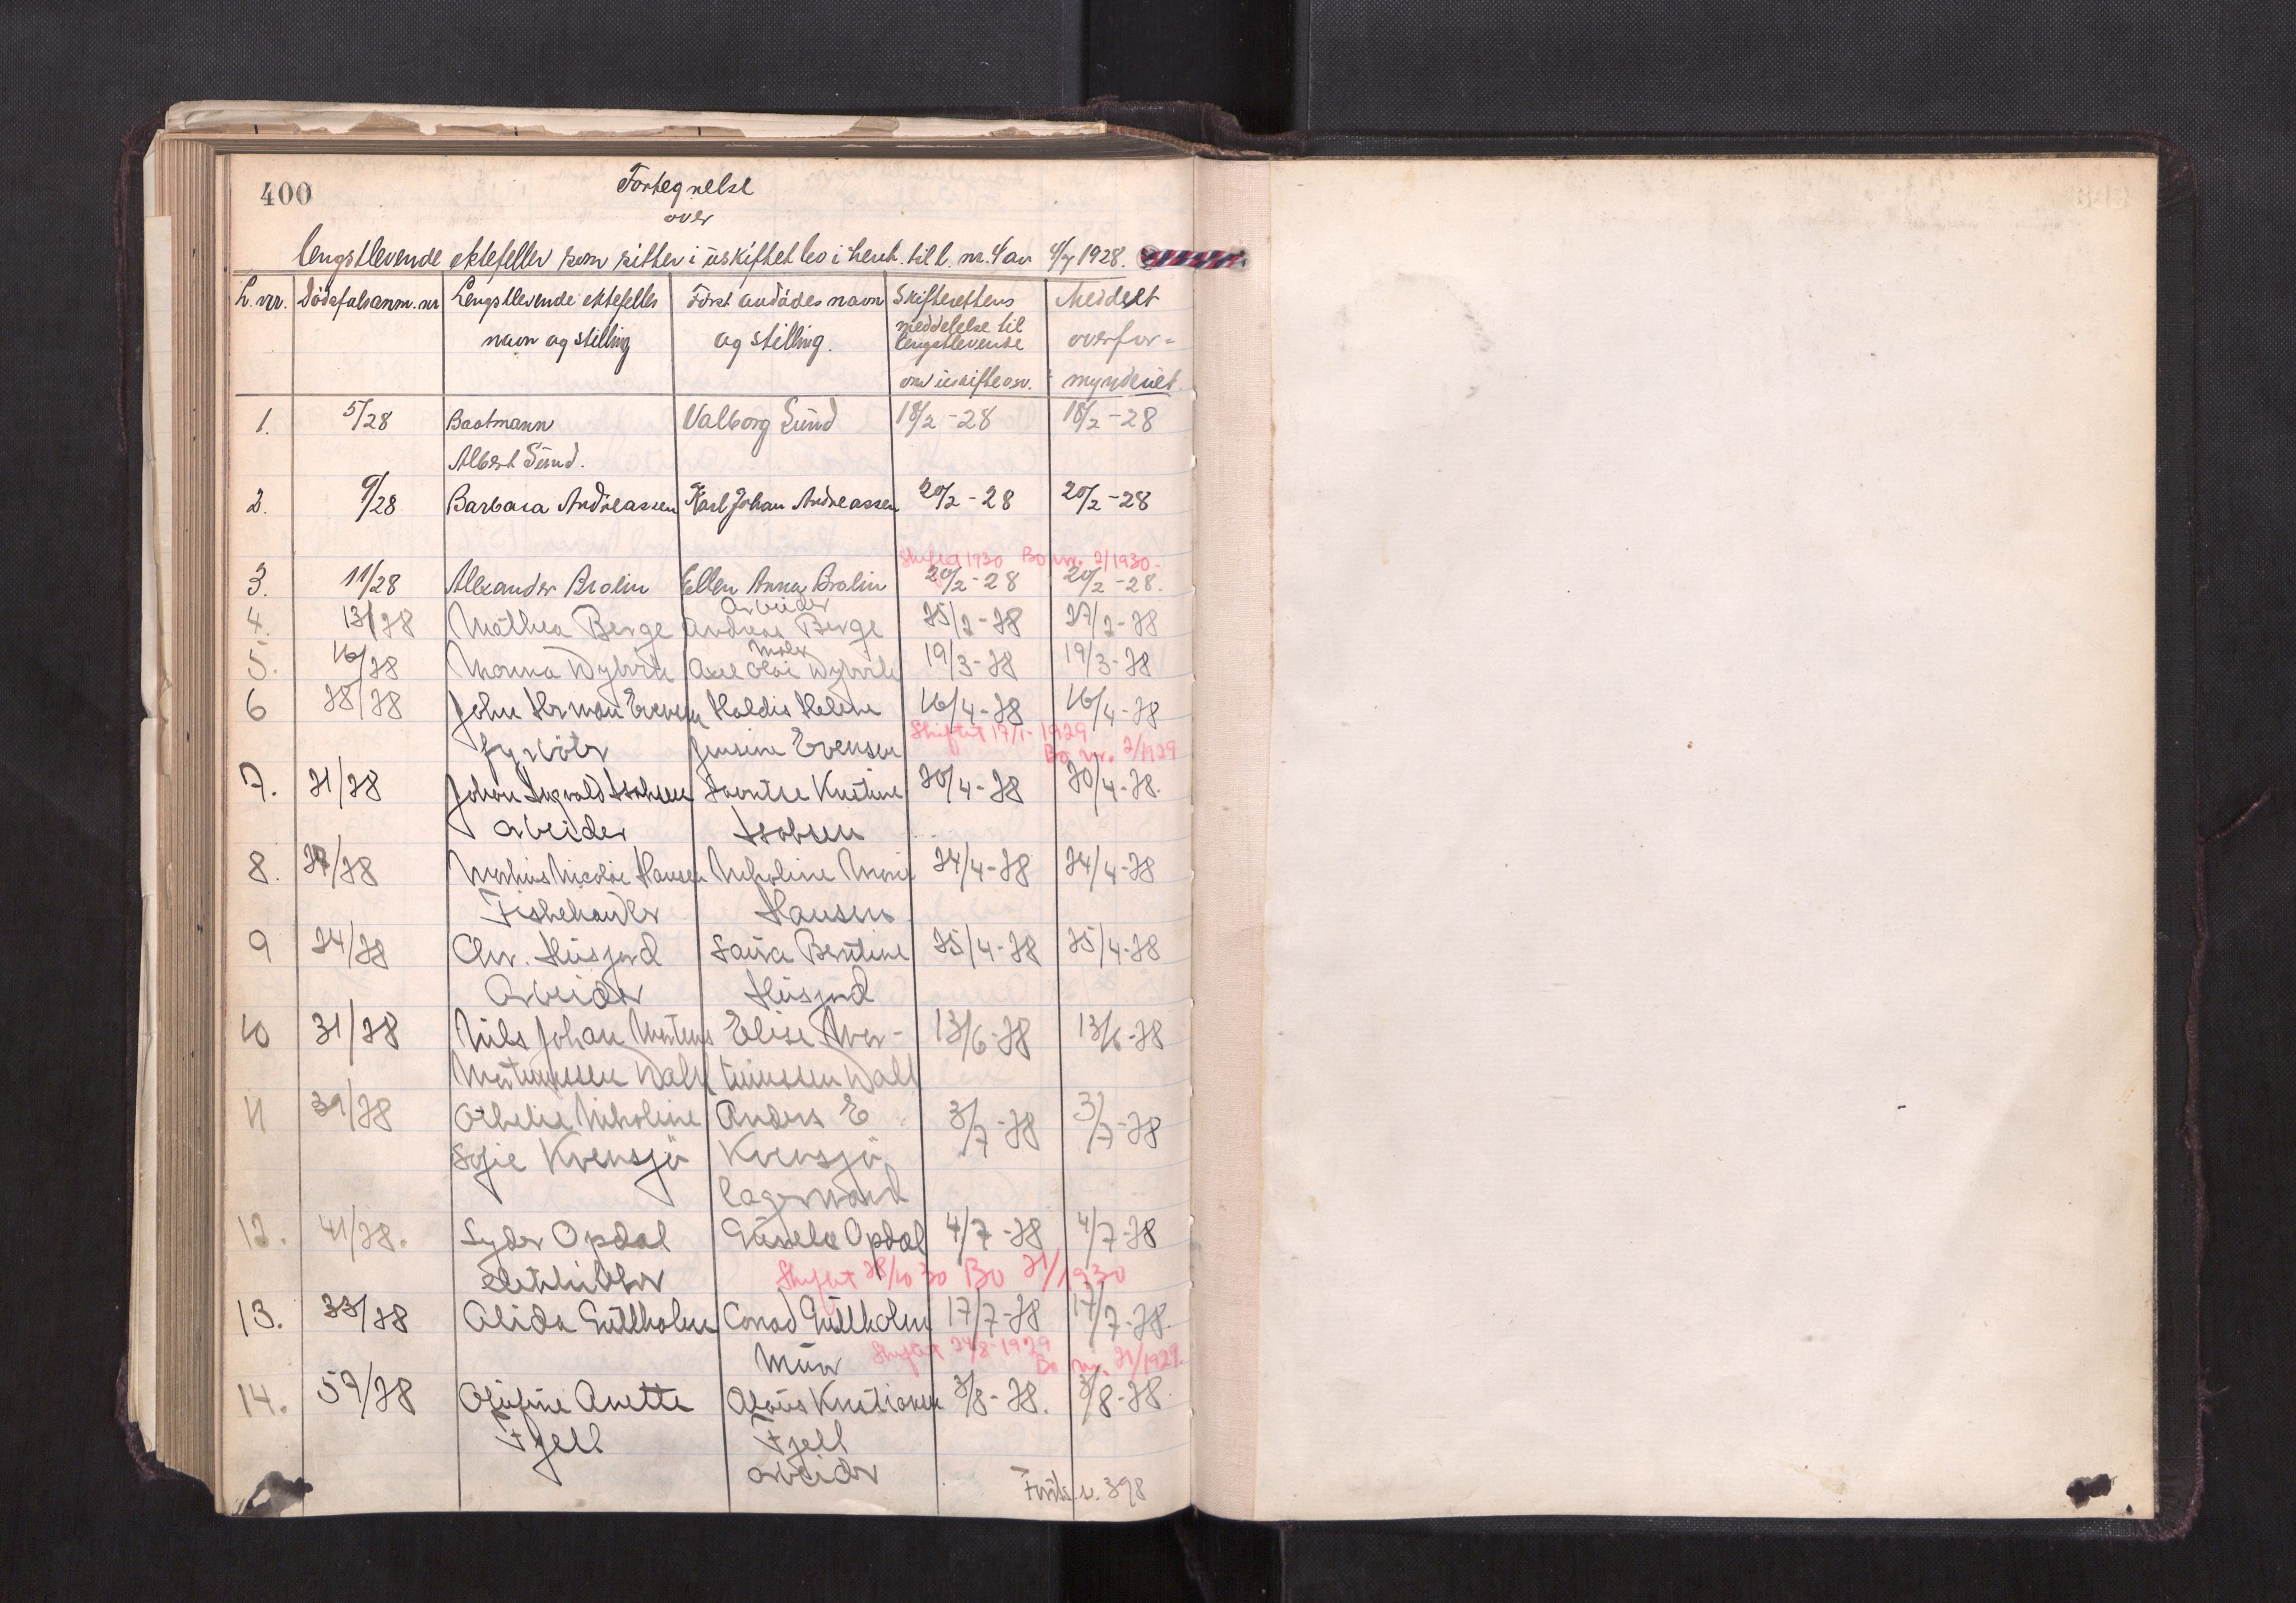 400
Fortegnelse
over
lengstlevende ektefeller som sitter i uskiftet bo i henh. til l. nr. 4 av 4/7 1928.
L. nr. Dödsfalsanm. nr Lengstlevende ektefelles Först avdödes navn Skifterettens Meddelt
navn og stilling og stilling. meddelelse til overfor-
lengstlevende
om uskifte osv. mynderiet.
1. 5/28 Baatmann Valborg Lund 18/2-28 18/2-28
Albert Lund.
2. 9/28 Barbara Andreassen Karl Johan Andreassen 20/2-28 20/2-28
Skiftet 1930 Bo nr. 2/1930.
3. 11/28 Alexander Brolin Ellen Anna Brolin 20/2-28 20/2-28.
arbeider
4. 13/28 Mathea Berge Andreas Berge 25/2-28 27/2-28
maler
5. 16/28 Axel Olai 19/3-28 19/3-28
6 28/28 John Herman Evensen Haldis Helene 16/4-28 16/4-28
fyrböter Jensine Evensen Skiftet 17/1-1929
Bo nr. 2/1929
7. 21/28 Johan Isaksen Kristine 20/4-28 20/4-28.
arbeider
8. /28 Nicolai Hansen Nikoline Marie 24/4-28 24/4-28
Fiskehandler Hansen
9 24/28 Chr. Husjord Laura Berntine 25/4-28 25/4-28
Arbeider Husjord
10 31/28 Nils Johan Elise Mor- 13/6-28 13/6-28
Dahl tinussen Dahl
11 39/28 Nikoline Anders E 3/7-28 3/7-28
Sofie Kvensjö Kvensjö
lagermand
12. 41/28. Lyder Opdal Opdal 4/7-28 4/7-28
Skiftet 28/10 30 Bo 21/1930
13. 33/28 Alida Gullholm Conrad Gullholm 17/7-28 17/7-28.
Murer Skiftet 24/8-1929
Bo nr. 21/1929.
14. 57/28 Olufine Anette Kristiansen 3/8-28. 3/8-28.
Fjell Fjell
arbeider
Forts. s. 398